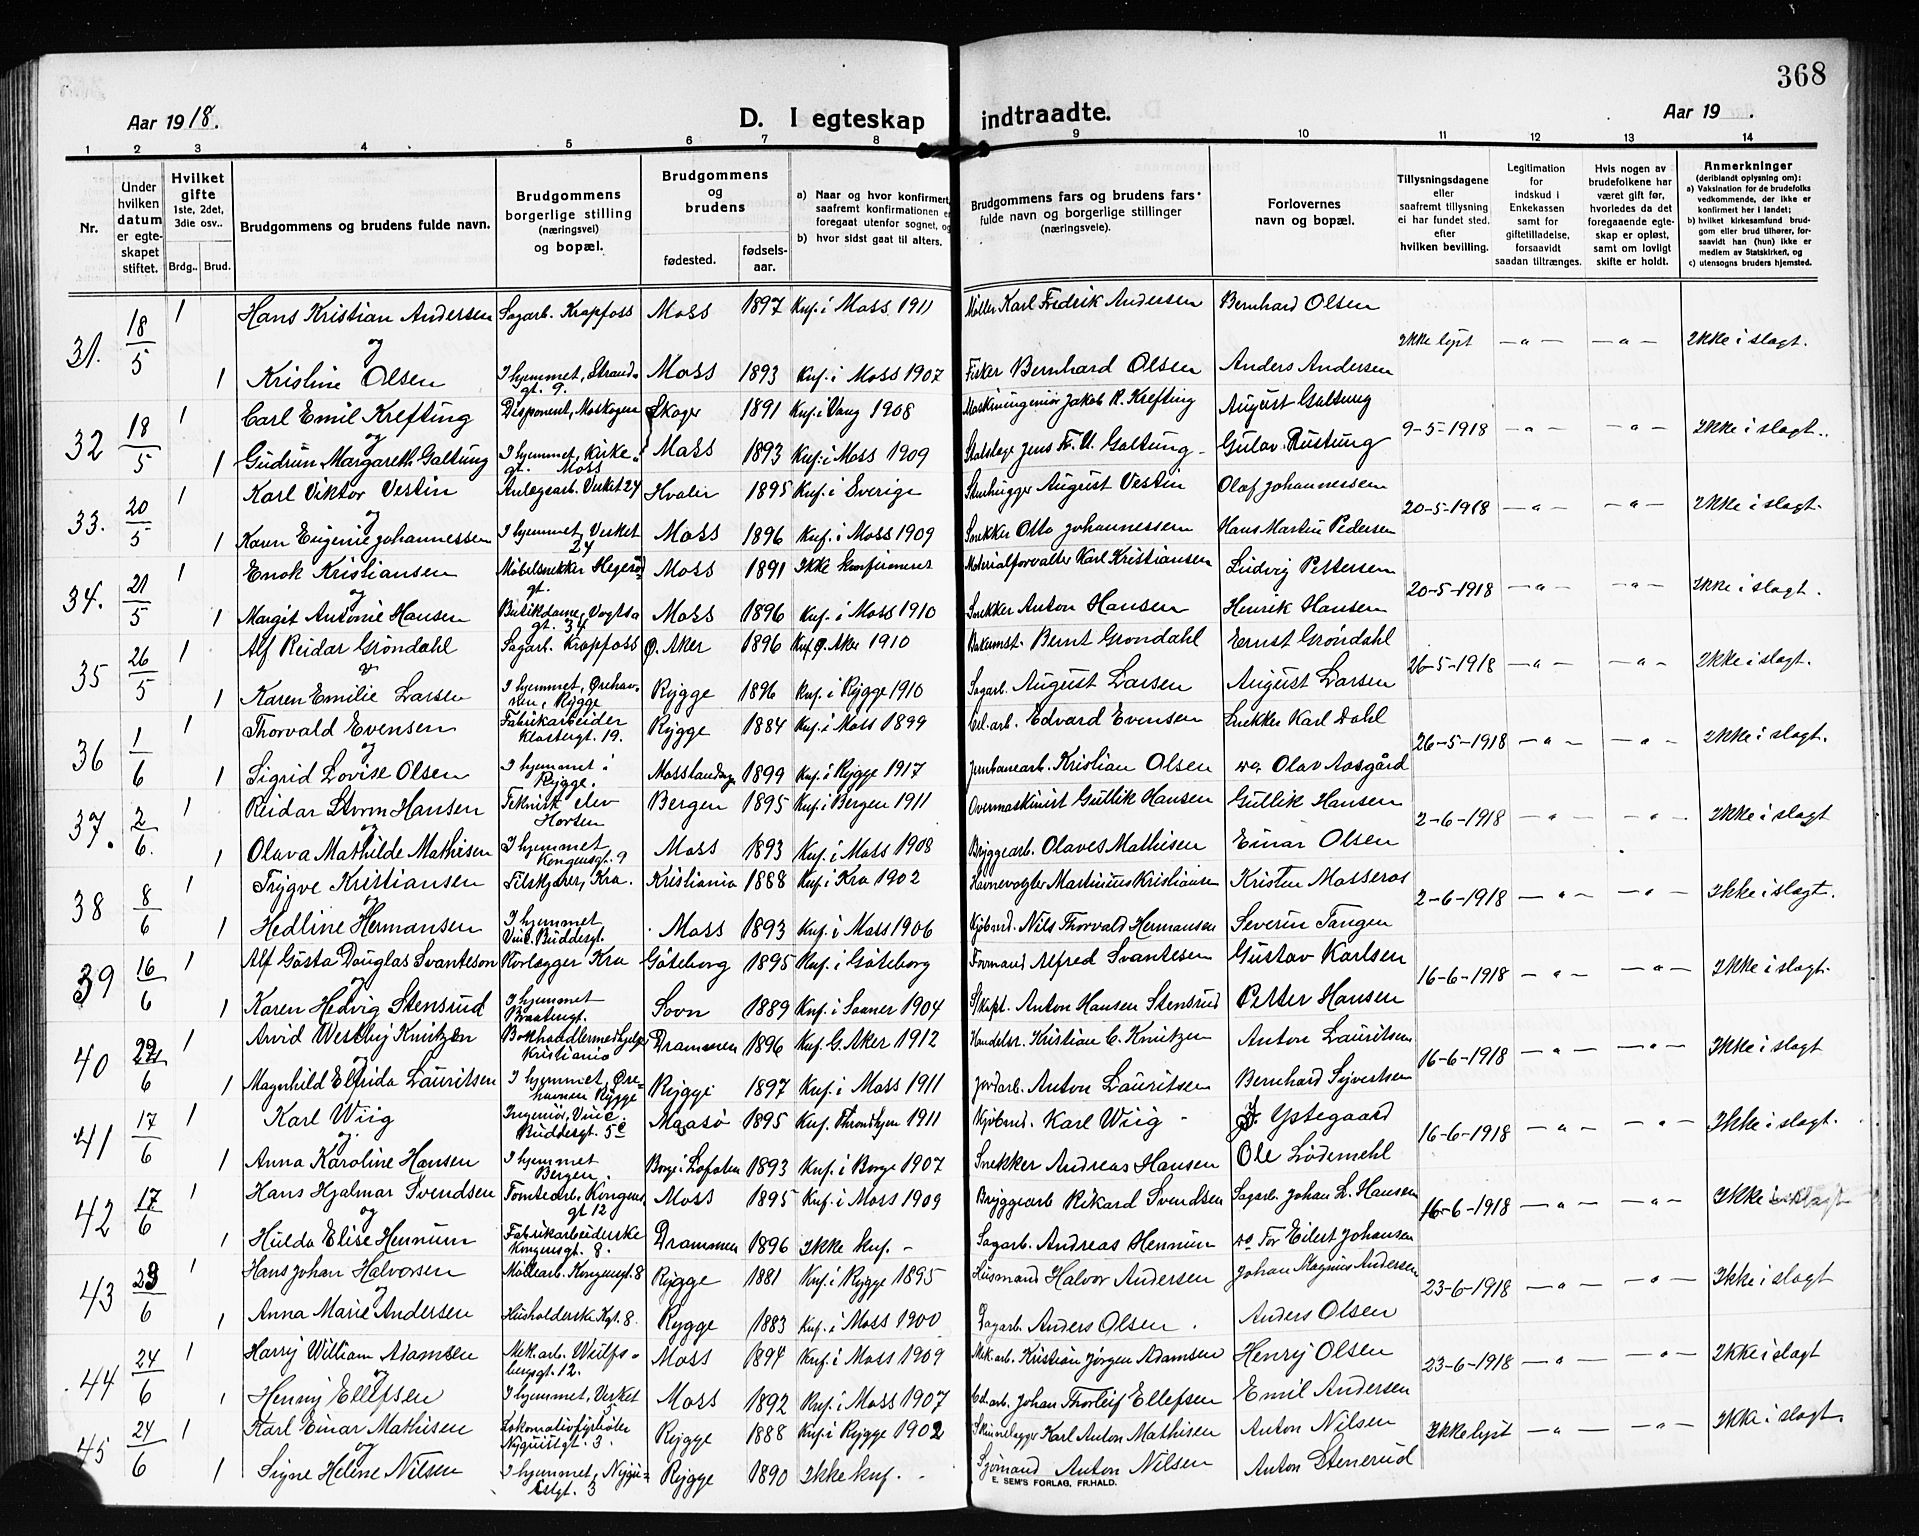 368
Aar 1918.
D. I egteskap indtraadte.
Aar 19 .
1 2 3 4 5 6 7 8 9 10 11 12 13 14
Nr.
Under hvilken datum er egteskapet stiftet.
Hvilket gifte 1ste, 2det, 3die osv..
Brdg.. Brud.
Brudgommens og brudens fulde navn.
Brudgommens borgerlige stilling (næringsvei) og bopæl.
Brudgommens og brudens
fødested. fødselsaar.
a) Naar og hvor konfirmert, saafremt konfirmationen er foregaat utenfor sognet, og
b) hvor sidst gaat til alters.
Brudgommens fars og brudens fars fulde navn og borgerlige stillinger (næringsveie).
Forlovernes navn og bopæl.
Tillysningsdagene eller saafremt tillysning ei har fundet sted. efter hvilken bevilling.
Legitimation for indskud i Enkekassen samt for giftetilladelse, forsaavidt saadan tiltrænges.
Hvis nogen av brudefolkene har været gift før, hvorledes da det foregaaende egteskap er opløst, samt om lovlig skifte er holdt.
Anmerkninger (deriblandt oplysning om):
a) Vaksination for de brudefolks vedkommende, der ikke er konfirmert her i landet;
b) hvilket kirkesamfund brudgom eller brud tilhører, forsaavidt han (hun) ikke er medlem av Statskirken, og
c) utensogns bruders hjemsted.
31. 18/5 1 Hans Kristian Andersen Sagarb. Krapfoss Moss 1897 Knf. i Moss 1911 Møller Karl Fredrik Andersen Bernhard Olsen
og Ikke lyst — " — — " — Ikke i slagt.
1 Kristine Olsen I hjemmet, Strandgt. 9. Moss 1893 Knf. i Moss 1907 Fisker Bernhard Olsen Anders Andersen
32 18/5 1 Carl Emil Krefting Disponent, Moskogen Skoger 1891 Knf. i Vang 1908 Maskiningeniør Jakob R. Krefting August Galtung
og 9-5-1918 — " — — " — Ikke i slagt.
1 Gudrun Margareth Galtung I hjemmet, Kirkegt. Moss Moss 1893 Knf. i Moss 1909 Statslæge Jens Fr. U. Galtung Gulav Rustung
33. 20/5 1 Karl Viktor Vestin Anlægsarb. Verket 24 Hvaler 1895 Knf. i Sverige Stenhugger August Vestin Olaf Johannessen
og 20-5-1918 — " — — " — Ikke i slagt.
1 Karen Eugenie Johannessen I hjemmet, Verket 24 Moss 1896 Knf. i Moss 1909 Snekker Otto Johannessen Hans Martin Pedersen
34. 21/5 1 Enok Kristiansen Møbelsnekker gt. Moss 1891 Ikke konfirmeret Materialforvalter Karl Kristiansen Ludvig Pettersen
og 20-5-1918 — " — — " — Ikke i slagt.
1 Margit Antonie Hansen Butikdame, Vogtsgt. 34 Moss 1896 Knf. i Moss 1910 Snekker Anton Hansen Henrik Hansen
35 26/5 1 Alf Reidar Gröndahl Sagarb. Krapfoss Ø. Aker 1896 Knf. Ø. Aker 1910 Bernt Grøndahl Ernst Gröndahl
og 26-5-1918 — " — — " — Ikke i slagt.
1 Karen Emilie Larsen I hjemmet, Ørehavnen, Rygge Rygge 1896 Knf. i Rygge 1910 Sagarb. August Larsen August Larsen
36 1/6 1 Thorvald Evensen Fabrikarbeider Klostergt. 19. Rygge 1884 Knf. i Moss 1899 Edvard Evensen Snekker Karl Dahl
og 26-5-1918 — " — — " — Ikke i slagt.
1 Sigrid Lovise Olsen I hjemmet i Rygge. Mosslandsø 1899 Knf. i Rygge 1917 Jernbanearb. Kristian Olsen Olav Aasgård
37. 2/6. 1 Reidar Storm Hansen Teknisk elev Horten Bergen 1895 Knf. i Bergen 1911 Overmaskinist Gullik Hansen Gullik Hansen
og 2-6-1918 — " — — " — Ikke i slagt
1 Olava Mathilde Mathisen I hjemmet Kongensgt. 9 Moss 1893 Knf. i Moss 1908 Bryggearb. Olaves Mathisen Einar Olsen
38 8/6 1 Trygve Kristiansen Filskjærer, Kra. Kristiania 1888 Knf. i Kra 1902 Havnevogter Martinius Kristiansen Kristen Mosseros
og 2-6-1918 — " — — " — Ikke i slagt.
1 Hedline Hermansen I hjemmet Vinc. Buddesgt. Moss 1893 Knf. i Moss 1906 Kjøbmd. Nils Thorvald Hermansen Severin Tangen
39 16/6 1 Alf Gösta Douglas Svanteson Rørlægger Kra Göteborg 1895 Knf. i Göteborg Formand Alfred Svantesen Gustav Karlsen
og 16-6-1918 — " — — " — Ikke i slagt.
1 Karen Hedvig Stensrud I hjemmet Braatengt. Sovn 1889 Knf. i Saaner 1904 Skipt. Anton Hansen Stensrud Petter Hansen
40 22/6 1 Arvid Westby Knutzen Bokholdermedhjelper Kristiania Drammen 1896 Knf. G. Aker 1912 Handelsr. Kristian C. Knutzen Anton Lauritsen
og 16-6-1918 — " — — " — Ikke i slagt
1 Magnhild Elfrida Lauritsen I hjemmet, Ørehavnen Rygge Rygge 1897 Knf. i Moss 1911 Jordarb. Anton Lauritsen Bernhard Syvertsen
41 17/6 1 Karl Wiig Ingeniør, Vinc. Buddesgt. 5c Maasø 1895 Knf. Throndhjem 1911 Kjøbmd. Karl Wiig Ystegaard
og. 16-6-1918 — " — — " — Ikke i slagt.
1 Anna Karoline Hansen I hjemmet Bergen Borge i Lofoten 1893 Knf. i Borge 1907 Snekker Andreas Hansen Ole Lødemehl
42 17/6 1 Hans Hjalmar Svendsen Tomtearb. Kongensgt 12 Moss 1895 Knf. i Moss 1909 Bryggearb Rikard Svendsen Sagarb. Johan L. Hansen
og 16-6-1918 — " — — " — Ikke i slagt
1 Hulda Elise Hennum Fabrikarbeiderske Kongensgt. 8. Drammen 1896 Ikke knf. — Sagarb. Andreas Hennum Tor Eilert Johansen
43 23/6 1 Hans Johan Halvorsen Møllearb. Kongensgt. 8 Rygge 1881 Knf. i Rygge 1895 Husmand Halvor Andersen Johan Magnus Andersen
og 23-6-1918 — " — — " — Ikke i slagt
1 Anna Marie Andersen Husholderske Kgt. 8. Rygge 1883 Knf. i Moss 1900 Dagarb. Anders Olsen. Anders Olsen
44 24/6 1 Harry William Adamsen Mek. arb. Wulfsbergsgt. 12. Moss 1894 Knf. i Moss 1909 Mek. arb. Kristian Jörgen Adamsen Henry Olsen
og 23-6-1918 — " — — " — Ikke i slagt
1 Henny Ellefsen I hjemmet, Verket Moss 1892 Knf. i Moss 1907 Johan Thorleif Ellefsen Emil Andersen
45 24/6 1 Karl Einar Mathisen Lokomotivfyrbøter Nyquistgt. 3. Rygge 1888 Knf. i Rygge 1902 Skinnelægger Karl Anton Mathisen Anton Nilsen
og Ikke lyst — " — — " — Ikke i slagt.
1 Signe Helene Nilsen I hjemmet, Nyquistgt. 3 Rygge 1890 Ikke knf. — Sjømand Anton Nilsen Anton Stenerud
E. SEM'S FORLAG, FR.HALD.